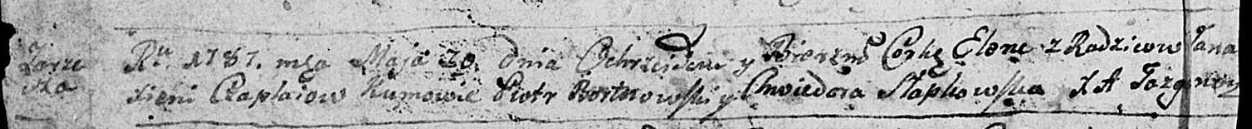 Zarze Ru 1787. mca Maja 20. dnia Ochrzciłem y Bierzmo Corkę Elenę z Rodzicow Jana
cka xieni Czaplaiow Kumowie Piotr Bortnowski y Chwiedora Słapkowska X A